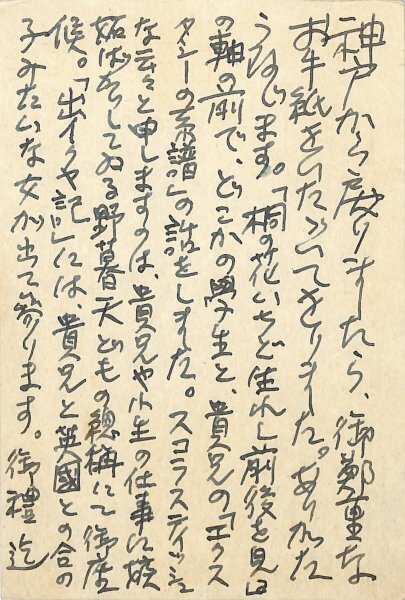 神戸から戻りましたら、御鄭重な
お手紙をいたゞいてをりました。ありがた
うぞんじます。「桐の花いちど生れし前後を見ば」
の軸の前で、どこかの學生と、貴兄の「エクス
タシーの系譜」の話をしました。スコラスティッシュ
な云々と申しますのは、貴兄や小生の仕事に嫉
妬ばかりしてゐる野暮天どもの總稱にて御座
候。「出イクヤ記」には、貴兄と英國との合の
子みたいな女が出て參ります。御禮迄